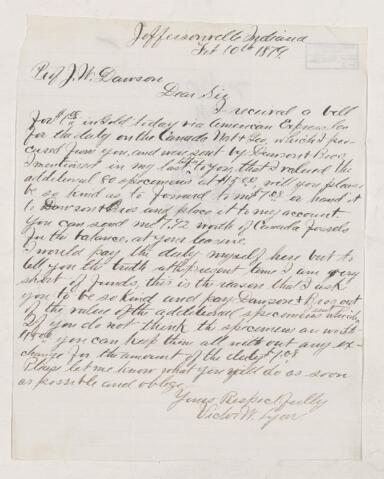 Jeffersonville Indiana
Feb 10th 1879
Prof J. W. Dawson
Dear Sir
I received a bill
for in Gold today via American Express Co
for the duty on the Canada Nat & Geo, which I pro-
cured from you, and were sent by Dawson Bros.
I mentioned in my last letter to you, that I valued the
additional 80 specimens at will you please
be so kind as to forward to me or hand it
to Dawson Bros and place it to my account
You can send me 7.92 worth of Canada fossils
for the balance, at your leasure.
I would pay the duty myself here but to
tell you the truth at the present time I am very
short of funds, this is the reason that I ask
you to be so kind and pay Dawson & Bros out
of the value of the additional specimens I sent which
If you do not think the specimens are worth
you can keep them all without any ex-
change for the amount of the duty
Pleas let me know what you will do as soon
as possible and oblige
Yours Respectfully
Victor W. Lyon